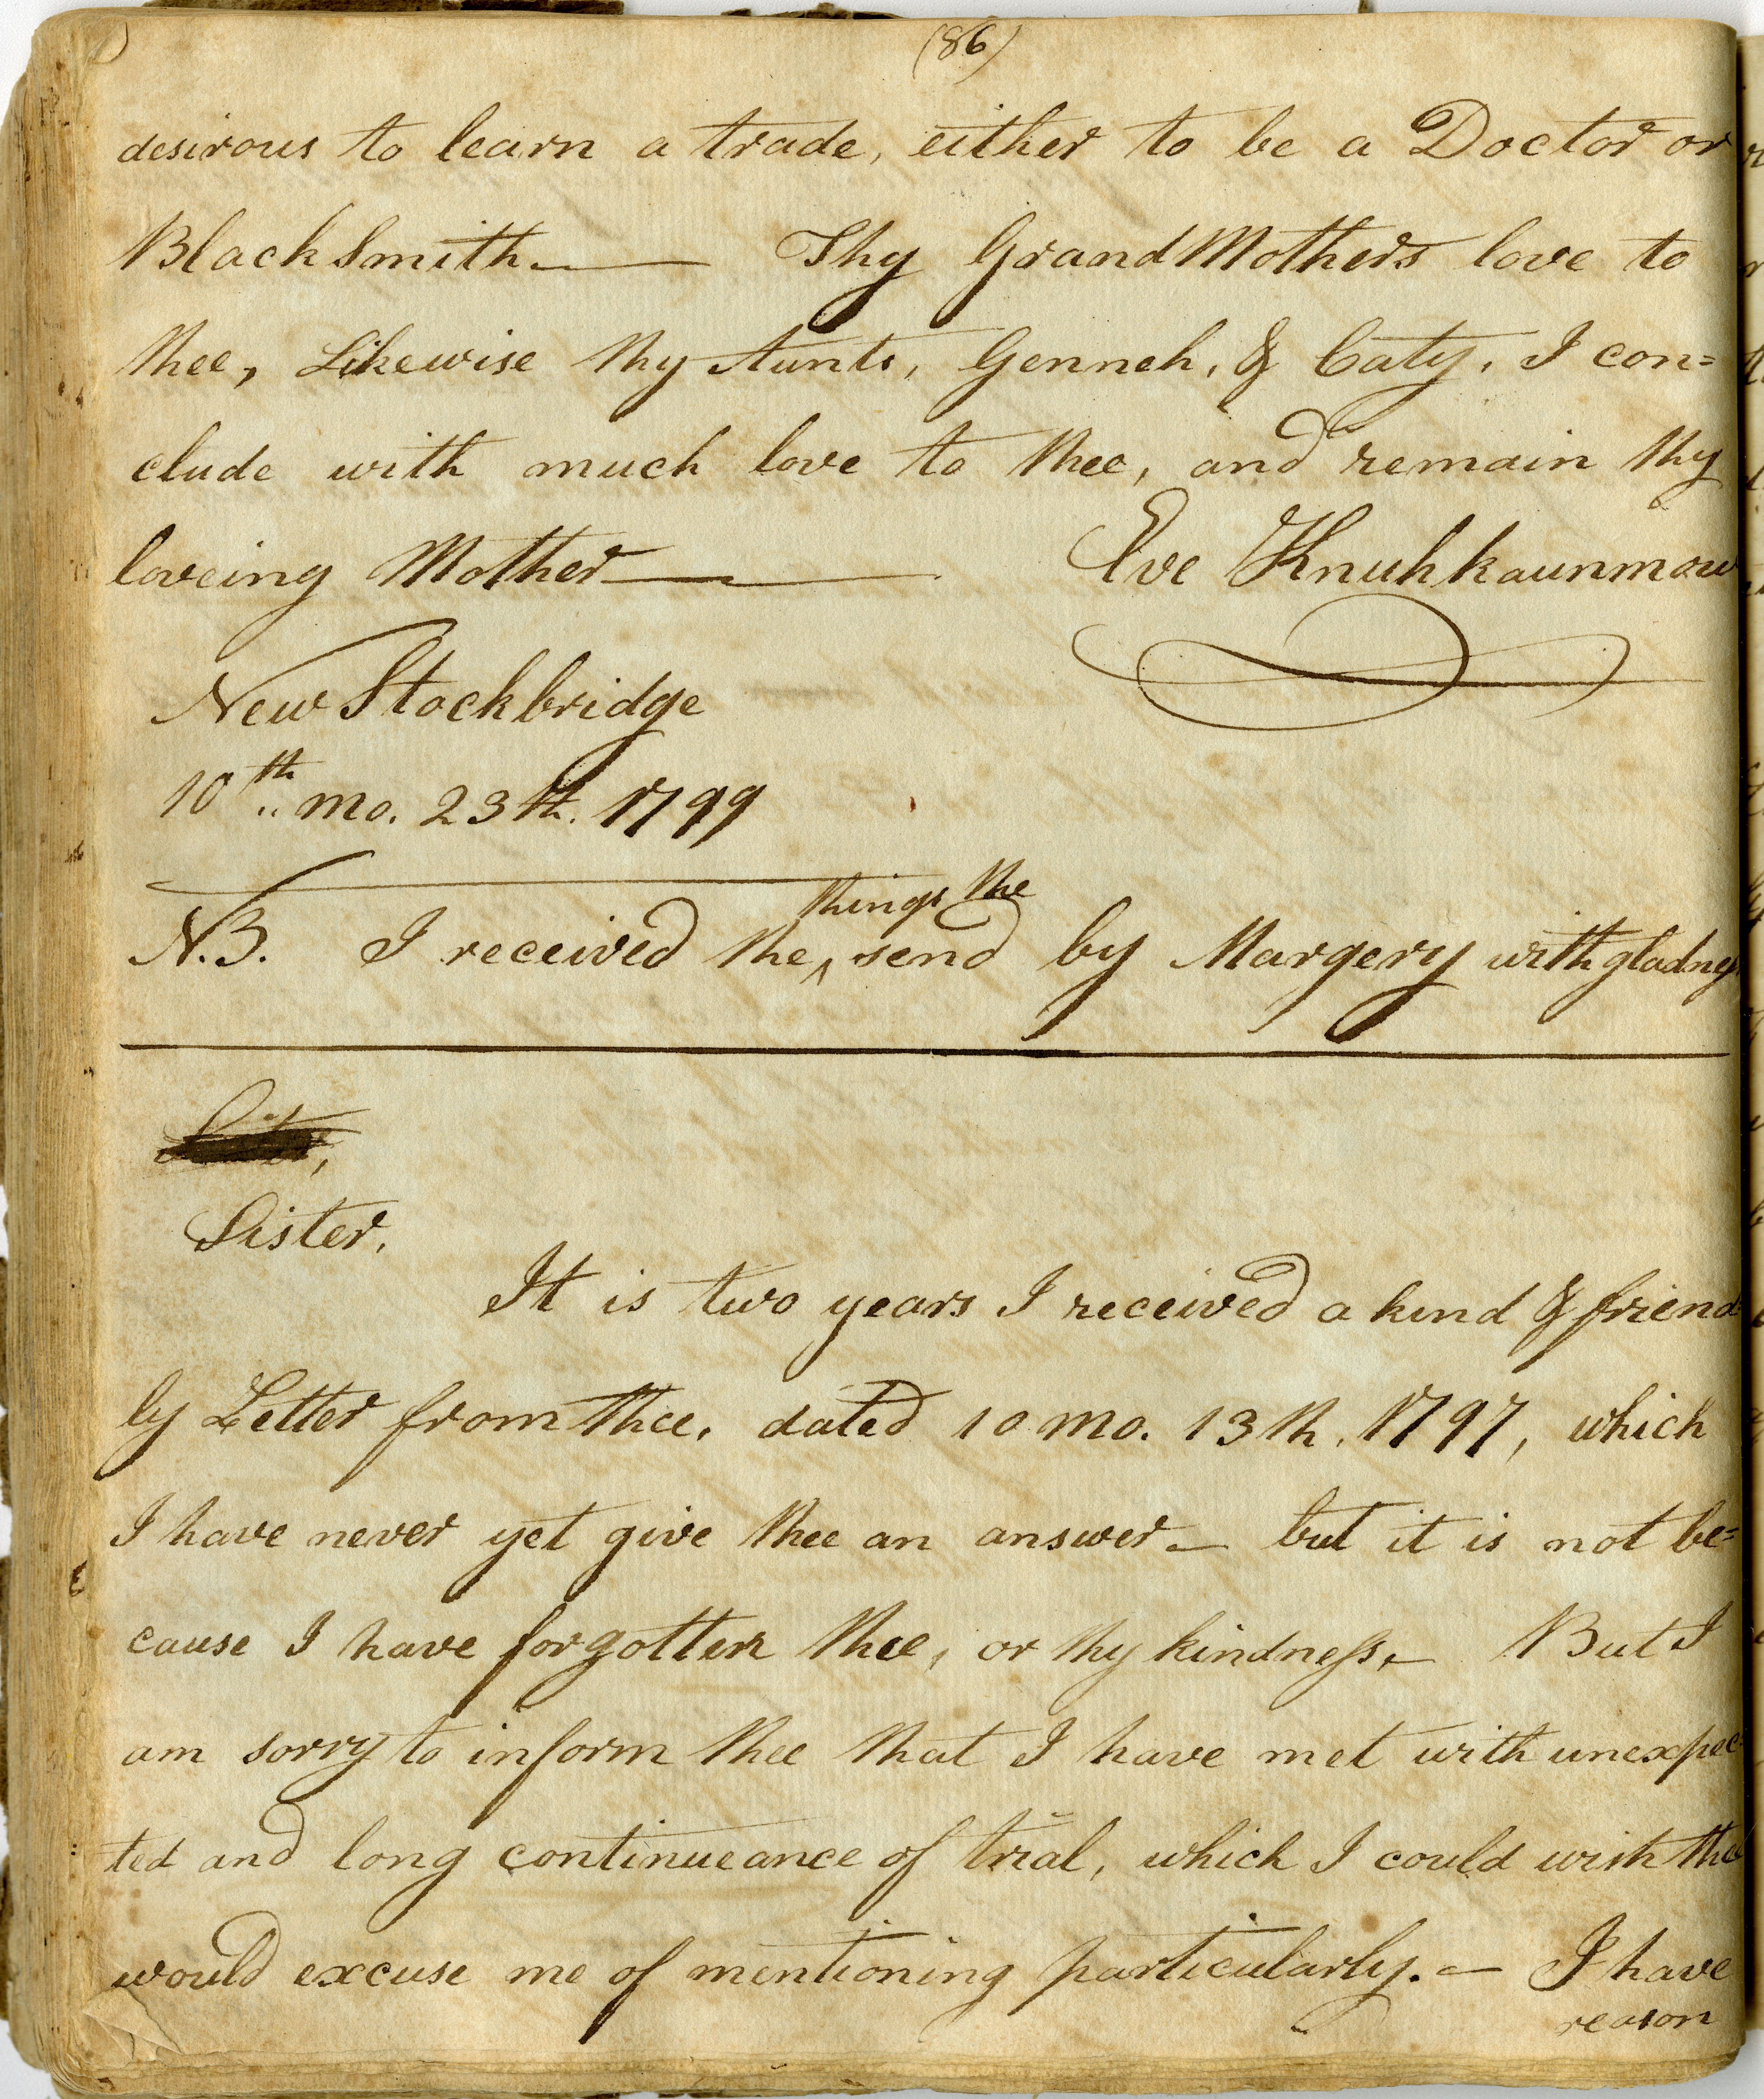 (86)
desirous to learn a trade, either to be a Doctor or
BlackSmith.—— Thy GrandMothers love to
thee, Likewise thy Aunts, Genneh, & Caty. I con=
clude with much love to thee, and remain thy
loveing Mother——— Eve Knuhkaunmow
New Stockbridge
10th mo. 23th. 1799
things the
N.B. I received the ‸ send by Margery with gladness
Sister.
It is two years I received a kind & friend=
ly Letter from thee, dated 10 mo. 13th. 1797, which
I have never yet give thee an answer — but it is not be=
cause I have forgotten thee, or thy kindness, — But I
am sorry to inform thee that I have met with unexpec=
ted and long continueance of trial, which I could wish thee
would excuse me of mentioning particularly. — I have
reason